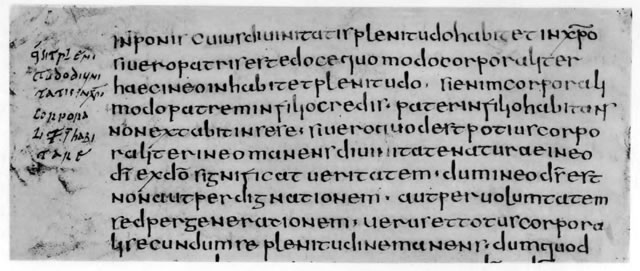 q̄sit pleni
tudo diuni
tatis in xpi
corpora
habi
tare
inponis cuius diuinitatis plenitudo habitet in xp̄o
si uero patris est edoce quomodo corporaliter
haec in eo inhabitet plenitudo. si enim corporali
modo patrem in filio credis. pater in filio habitans
non extabit in sese. si uero quod est potius corpo
raliter in eo manens diuinitate naturae in eo
d̄s ex d̄o significat ueritatem. dum in eo d̄s est
non aut per dignationem. aut per uolumtatem
sed per generationem. uerus et totus corpora
li secundum se plenitudine manens. dum quod